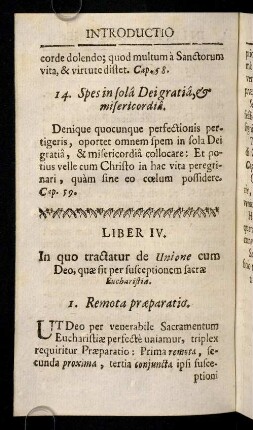 INTRODUCTIO
corde dolendo; quod multum à Sanctorum
vita, & virtute distet. Cap. 58.
14. Spes in solâ Dei gratiâ, &
misericordiâ.
Denique quocunque perfectionis per-
tigeris, oportet omnem spem in sola Dei
gratiâ, & misericordiâ collocare: Et po-
tius velle cum Christo in hac vita peregri-
nari, quàm sine eo cœlum possidere.
Cap. 59.
LIBER IV.
In quo tractatur de Unione cum
Deo, quæ fit per susceptionem sacræ
Eucharistiæ.
1. Remota præparatio.
UT Deo per venerabile Sacramentum
Eucharistiæ perfectè uniamur, triplex
requiritur Præparatio: Prima remota, se-
cunda proxima, tertia conjuncta ipsi susce-
ptioni